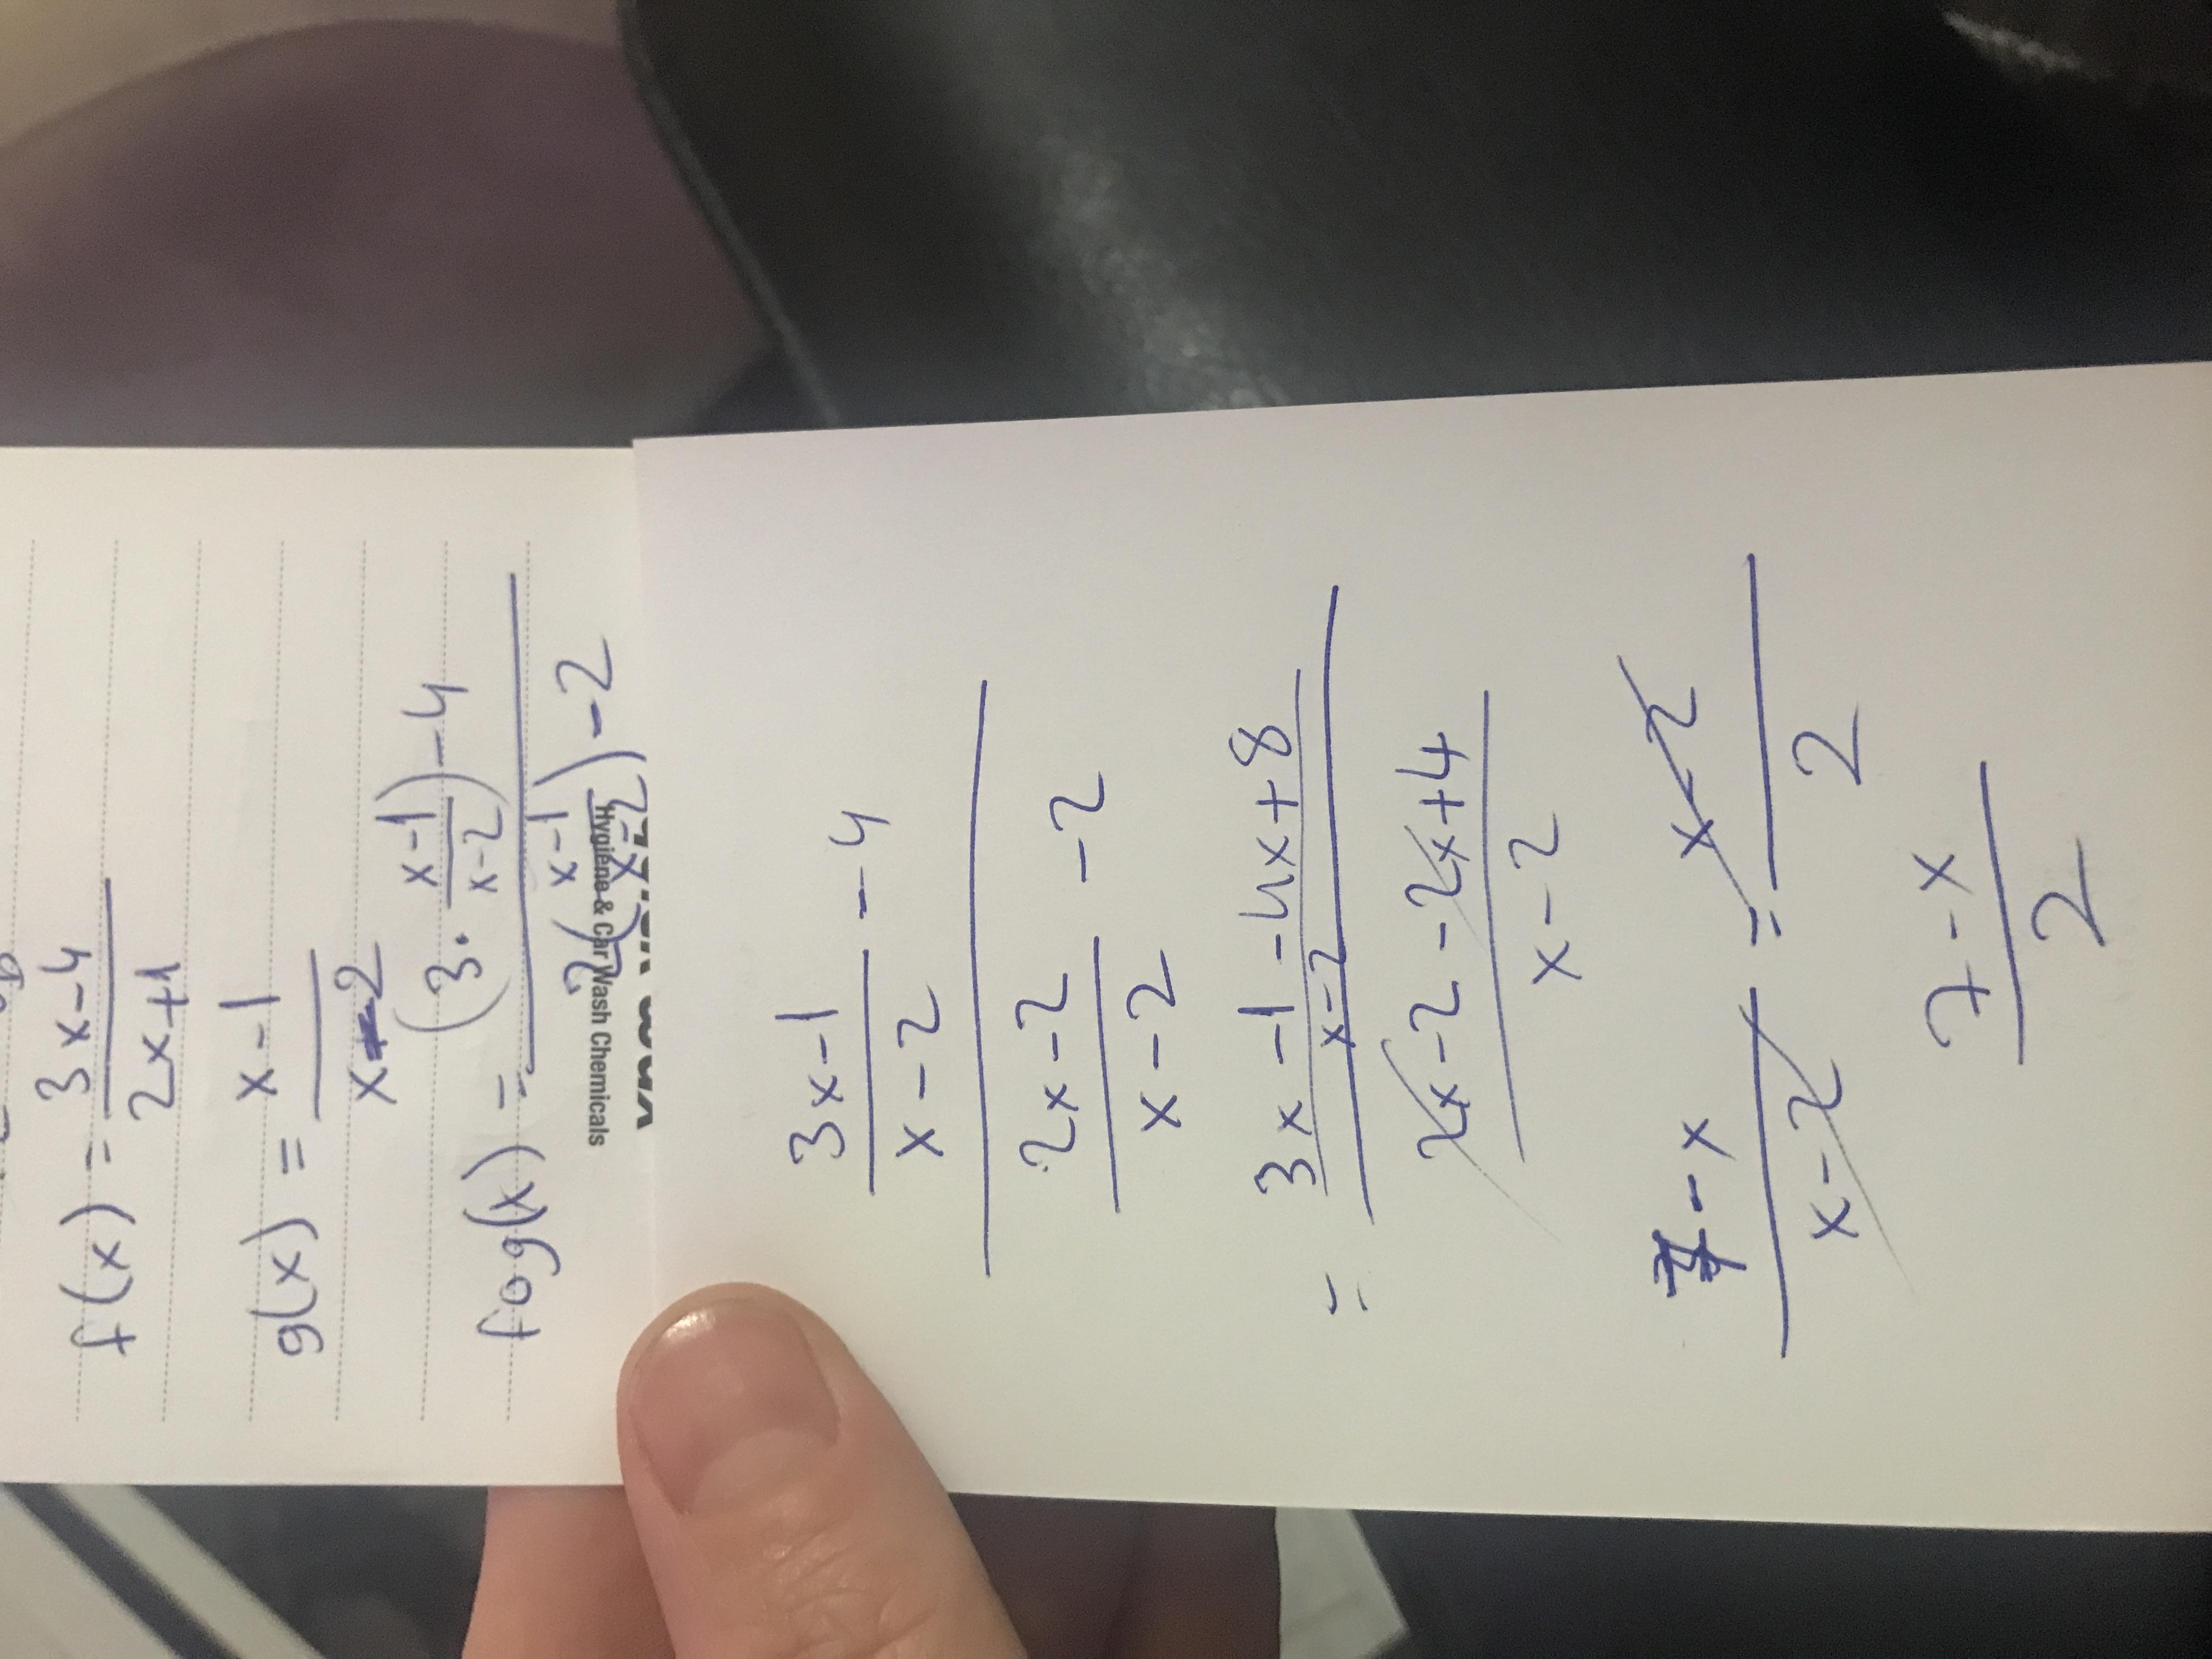 f(x) = 3x-4
2x+1
g(x) = x-1
x-2
fog(x) = (3. x-1) -4
x-2
2 (x-1) -2
x-2
Hygiene & Car Wash Chemicals
3x-1 -4
x-2
2x-2 -2
x-2
= 3x-1-4x+8
x-2
2x-2-2x+4
x-2
7-x = x-2
x-2 2
7-x
2